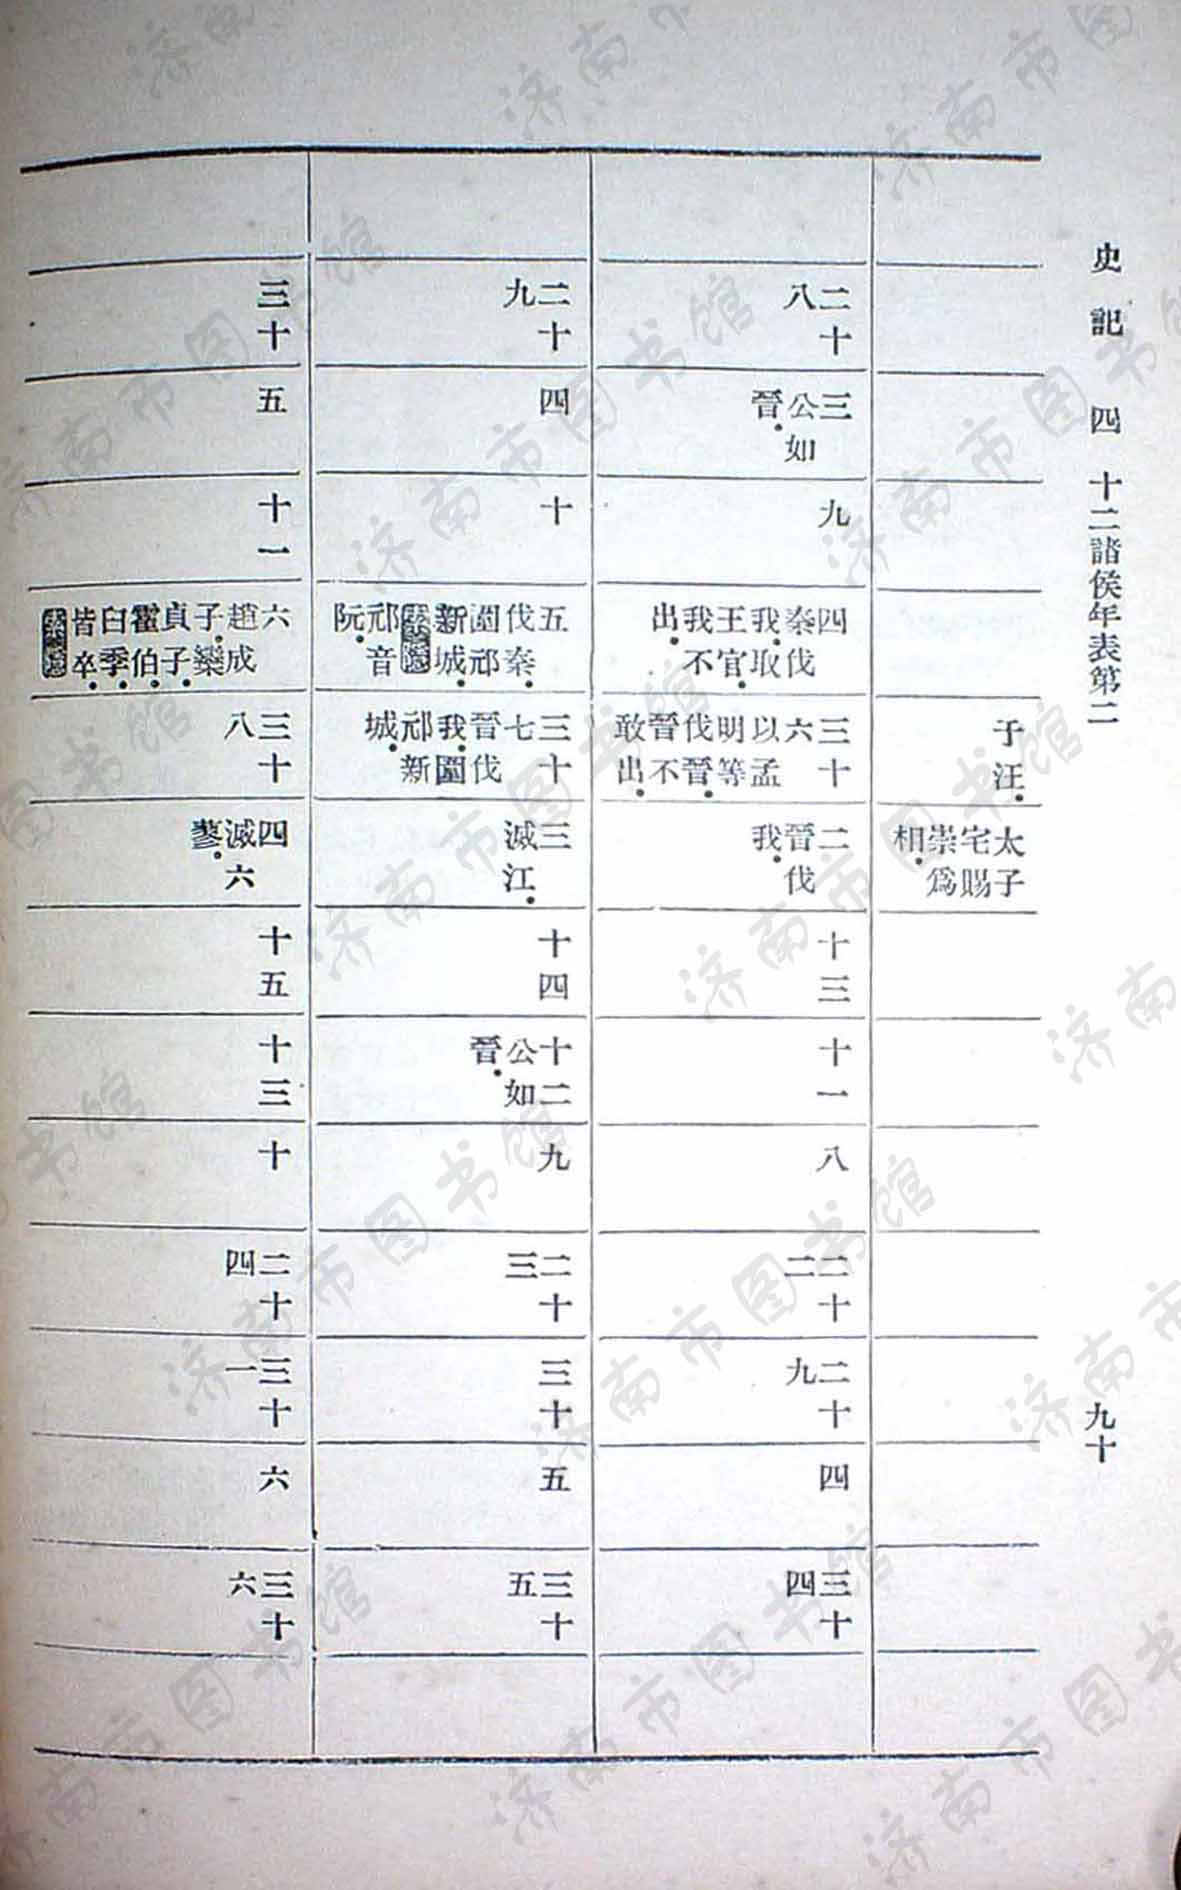 史記 四 十二諸侯年表第二 九十
子汪
太子宅賜崇爲相
二十八
三公如晉
九
四秦伐我取王官我不出
三十六以孟明等伐晉晉不敢出
二晉伐我
十三
十一
八
二十二
二十九
四
三十四
二十九
四
十
五伐秦圍邧新城邧音阮
三十七晉伐我圍邧新城
三滅江
十四
十二公如晉
九
二十三
三十
五
三十五
三十
五
十一
六趙成子欒貞子霍伯臼季皆卒
三十八
四滅六蓼
十五
十三
十
二十四
三十一
六
三十六
济南市图书馆